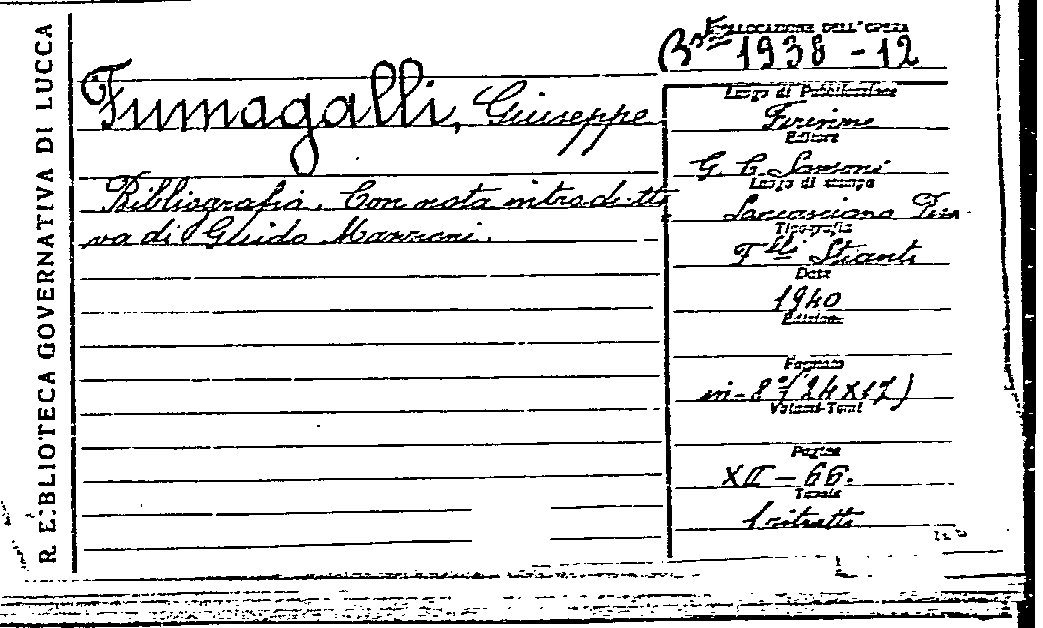 R. BIBLIOTECA GOVERNATIVA DI LUCCA
COLLOCAZIONE DELL'OPERA
Bst 1938 - 12
Fumagalli, Giuseppe
Bibliografia. Con nota introdutti
va di Guido Mazzoni.
Luogo di Pubblicazione
Firenze
Editore
G. C. Sansoni
Luogo di stampa
Sancasciano Pesa
Tipografia
F.lli Stianti
Data
1940
Edizione
Formato
in-8° (24X17)
Volumi-Tomi
Pagine
XII - 66.
Tavole
1 ritratto